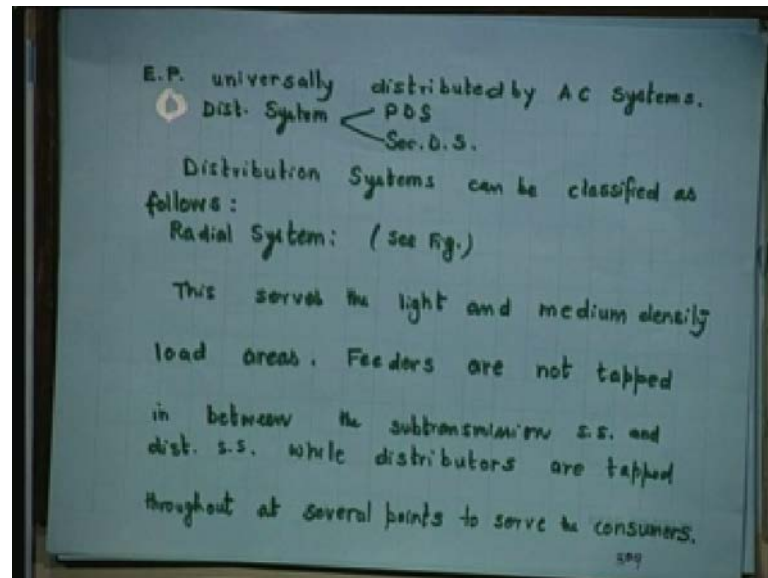 E.P. universally distributed by AC Systems.
Dist. System < PDS
Sec. D.S.
Distribution Systems can be classified as
follows:
Radial System: (See Fig.)
This serves the light and medium density
load areas. Feeders are not tapped
in between the subtransmission s.s. and
dist. s.s. while distributors are tapped
throughout at several points to serve the consumers.